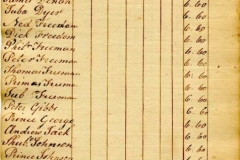 James Dinon 6.60
Juba Dyer 6.60
Ned Freeman 6.60
Dick Freedom 6.60
Phil Freeman 6.60
Peter Freeman 6.60
Thomas Freeman 6.60
Primus Freeman 6.60
Jub Freeman 6.60
Peter Gibbs 6.60
Prince George 6.60
Andrew Jack 6.60
Shub. Johnson 6.60
Prince Johnson 6.60